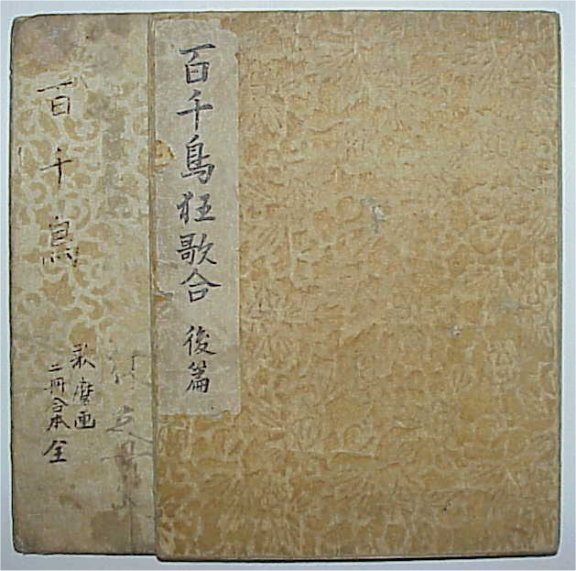 百千鳥狂歌合 後篇
百千鳥
哥麿画
二冊合本 全